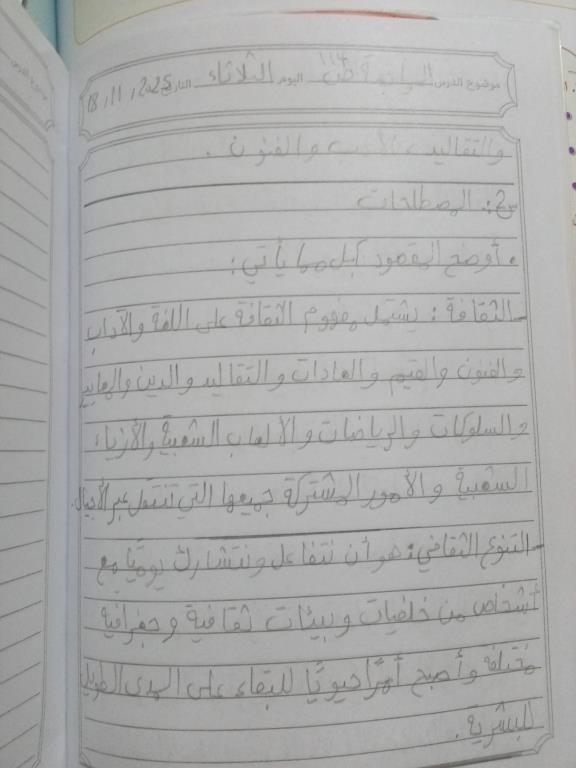 موضوع الدرس المراجعة ص ١١٤ اليوم الثلاثاء التاريخ 2025, 11, 18
والتقاليد، الأدب والفنون.
س2: المصطلحات
• أوضح المقصود بكل مما يأتي:
- الثقافة: يشتمل مفهوم الثقافة على اللغة والآداب
والفنون والقيم والعادات والتقاليد والدين والمعايير
والسلوكات والرياضات والألعاب الشعبية والأزياء
الشعبية والأمور المشتركة جميعها التي تنتقل عبر الأجيال.
- التنوع الثقافي: هو أن نتفاعل ونتشارك يوميًا مع
أشخاص من خلفيات وبيئات ثقافية وجغرافية
مختلفة وأصبح أمرًا حيويًا للبقاء على المدى الطويل
للبشرية.